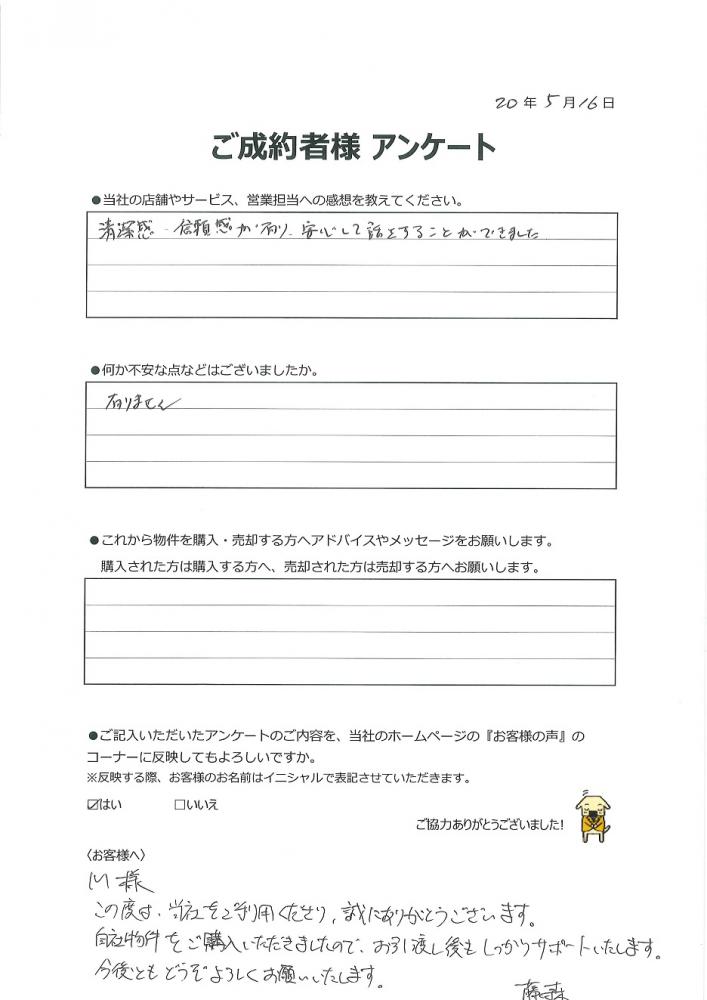 20年5月16日
ご成約者様 アンケート
●当社の店舗やサービス、営業担当への感想を教えてください。
清潔感、信頼感が有り、安心して話をすることができました
●何か不安な点などはございましたか。
有りません
●これから物件を購入・売却する方へアドバイスやメッセージをお願いします。
購入された方は購入する方へ、売却された方は売却する方へお願いします。
●ご記入いただいたアンケートのご内容を、当社のホームページの『お客様の声』の
コーナーに反映してもよろしいですか。
※反映する際、お客様のお名前はイニシャルで表記させていただきます。
☑はい □いいえ
ご協力ありがとうございました!
〈お客様へ〉
様
この度は、当社をご利用くださり、誠にありがとうございます。
自社物件をご購入いただきましたので、お引渡し後もしっかりサポートいたします。
今後ともどうぞよろしくお願いいたします。
藤森